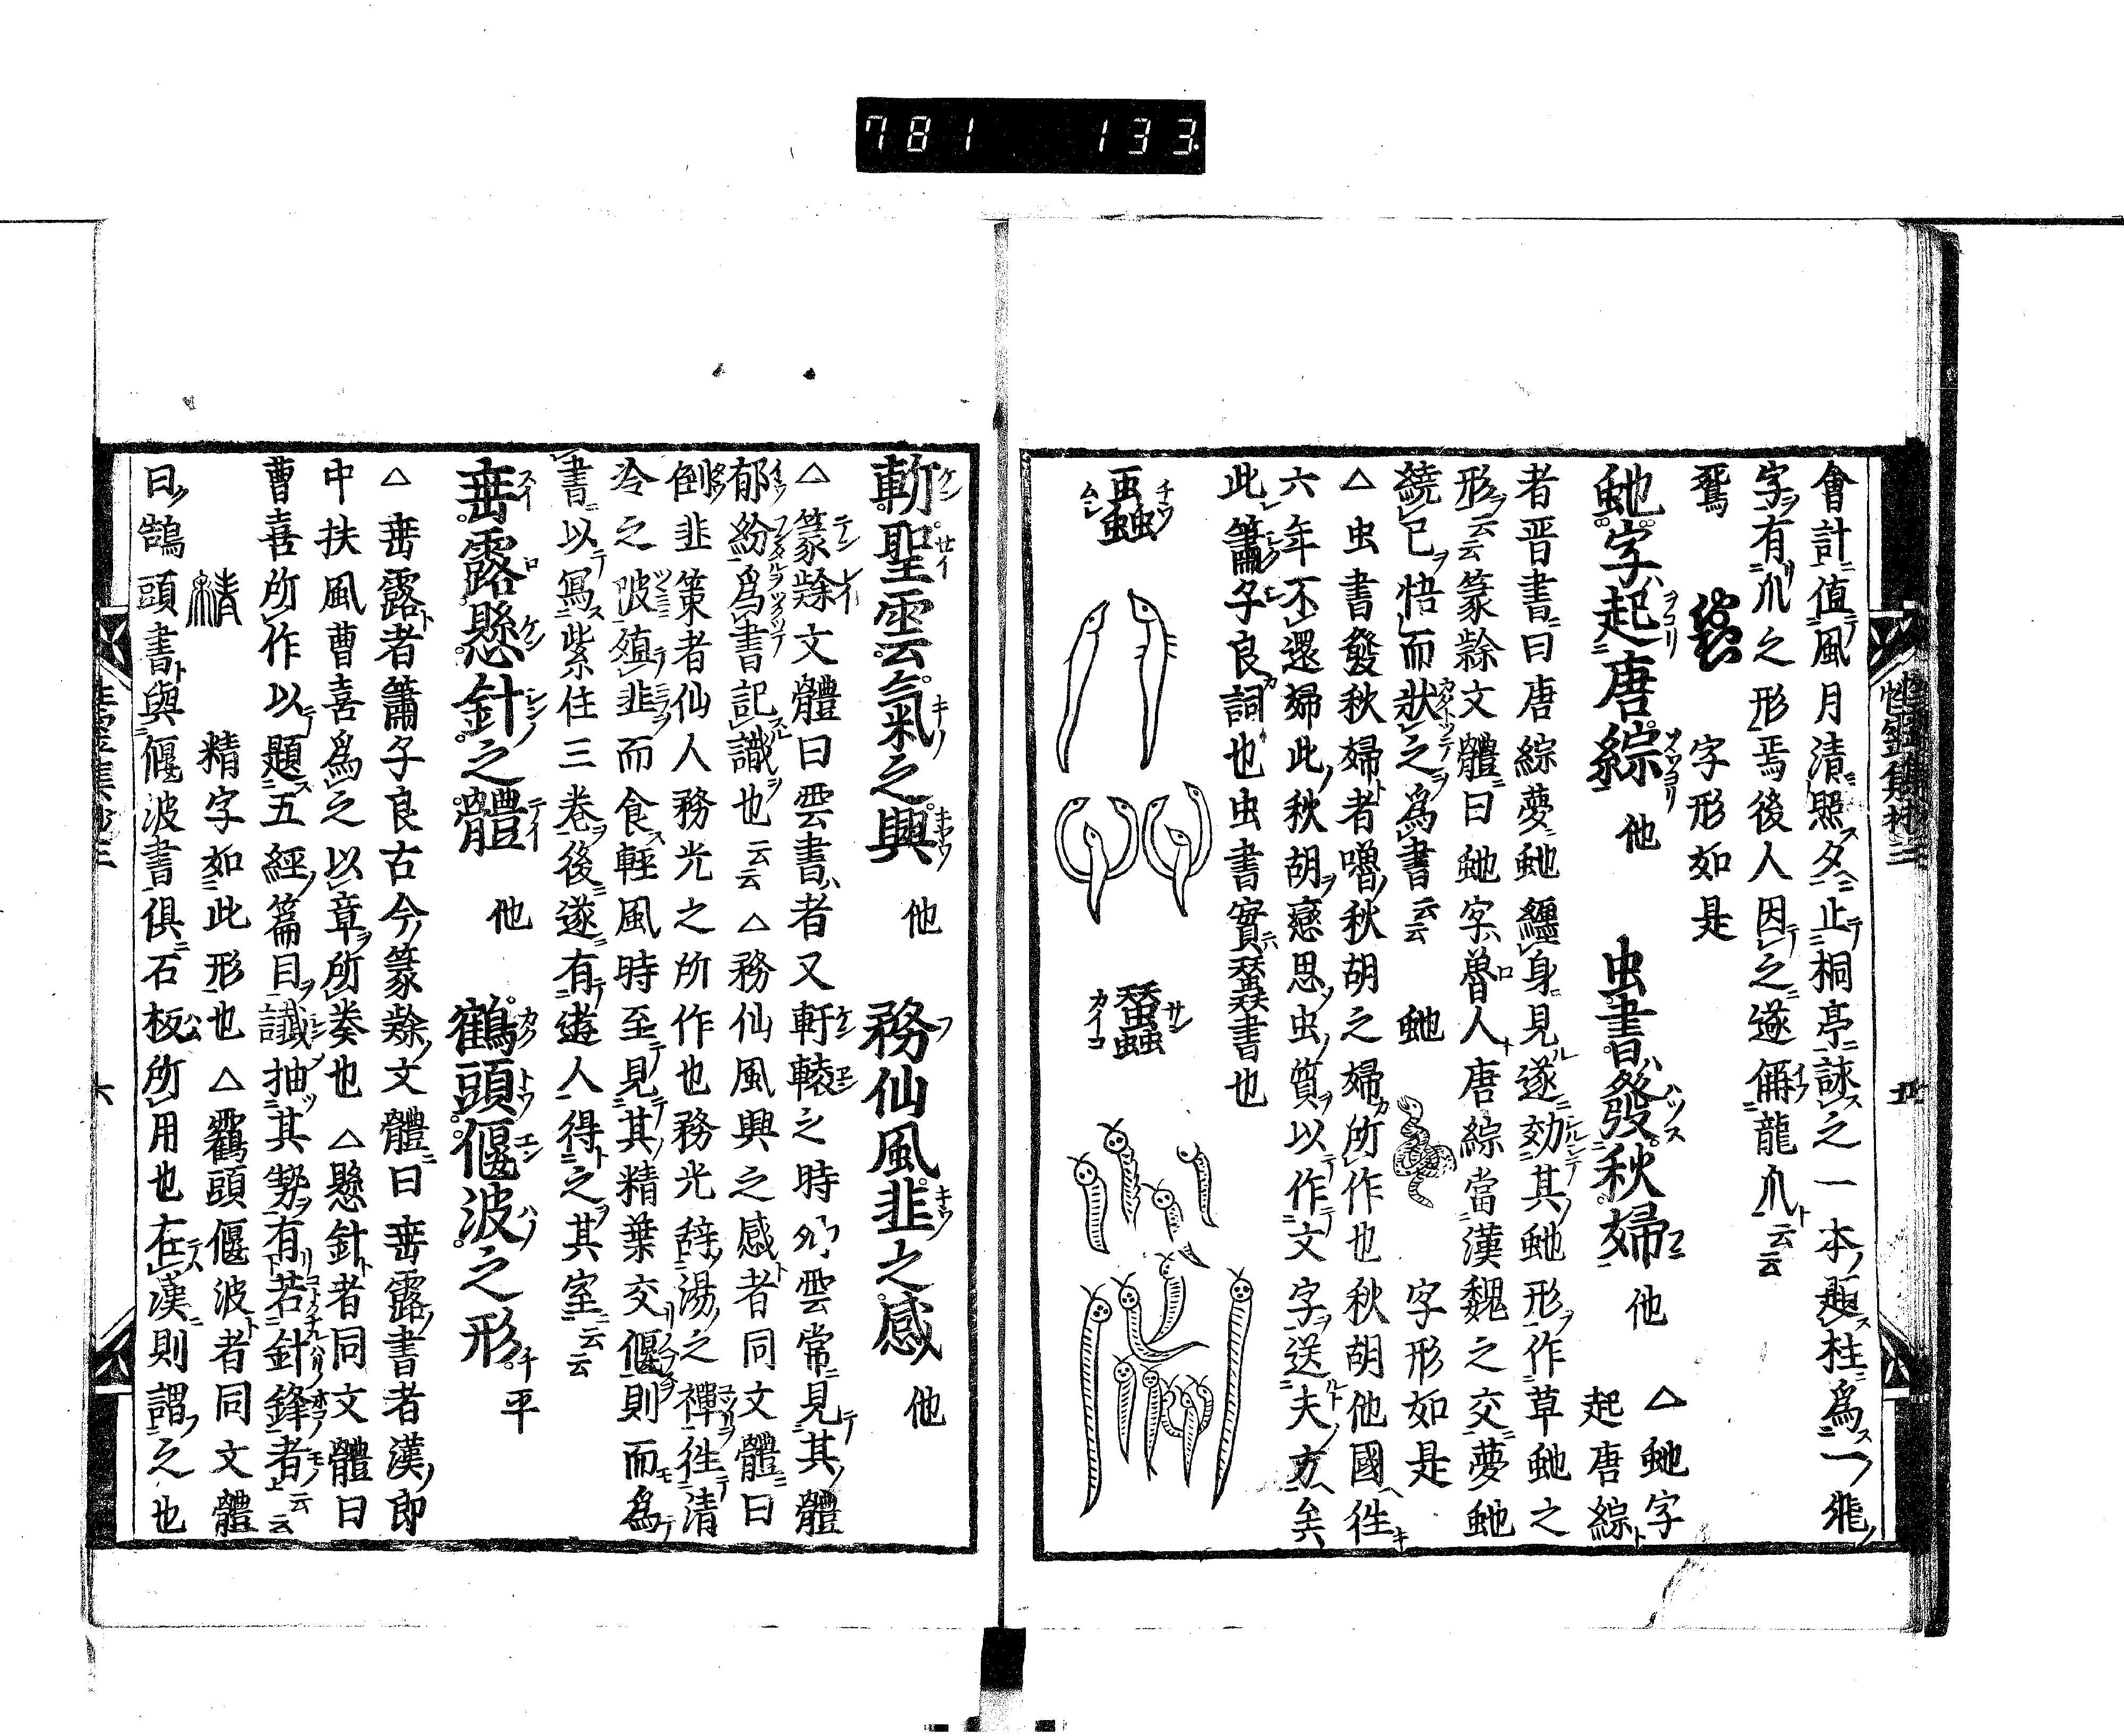 781 133
會計値風月淸照夕止桐亭詠之一本題柱爲一飛
字有爪之形焉後人因之遂偁龍爪云云
鵞 字形如是
虵字起唐綜 他 虫書發秋婦 他 △虵字
起唐綜
者晋書曰唐綜夢虵纒身見遂効其虵形作草虵之
形云云篆𨽻文體曰虵字魯人唐綜當漢魏之交夢虵
繞已悟而狀之爲書云云 虵 字形如是
△虫書發秋婦者嚕秋胡之婦所作也秋胡他國徃
六年不還婦此秋胡戀思虫質以作文字送夫方矣
此簫子良詞也虫書實蠶書也
蟲 チウ ムシ
蠶 サン カイコ
性靈集抄三 五
軒聖雲氣之興 他 務仙風韭之感 他
△篆𨽻文體曰雲書者又軒轅之時卿雲常見其體
郁紛爲書記識也云云 △務仙風興之感者同文體曰
倒韭䇿者仙人務光之所作也務光辝湯之禪徃淸
冷之陂殖韭而食輕風時至見其精葉交偃則而爲
書以寫紫住三卷後遂有遊人得之其室云云
垂露懸針之體 他 鶴頭偃波之形 千平
△垂露者簫子良古今篆𨽻文體曰垂露書者漢即
中扶風曹喜爲之以章所奏也 △懸針者同文體曰
曹喜所作以題五經篇目讖抽其勢有若針鋒者上云云
精字如此形也 △鸖頭偃波者同文體
曰鵠頭書與偃波書俱石板所用也在漢則謂之也
性靈集抄三 六